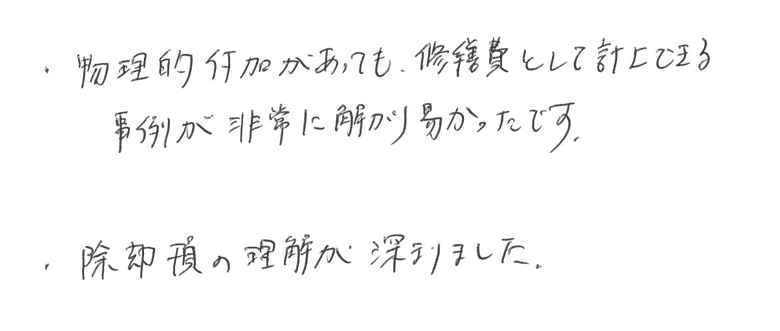 ・物理的付加があっても、修繕費として計上できる
事例が非常に解かり易かったです。
・除却損の理解が深まりました。